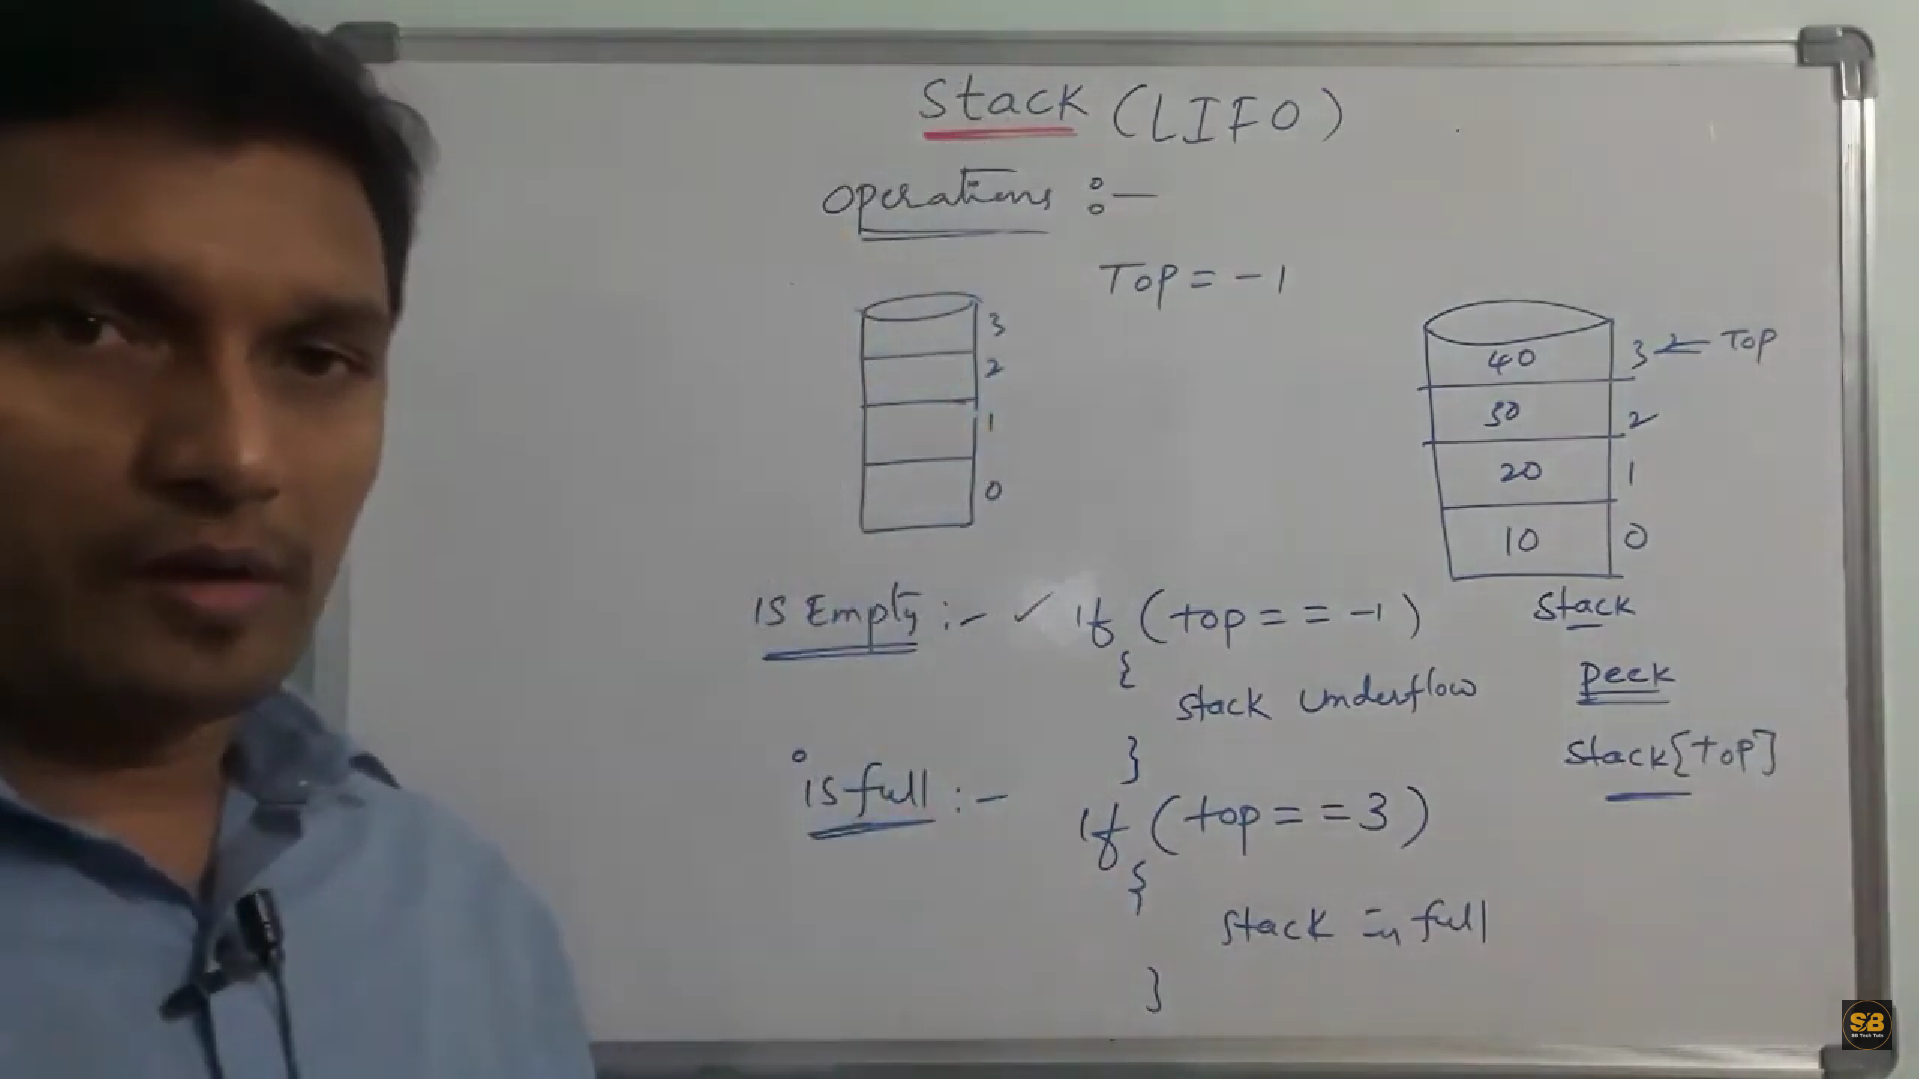 Stack (LIFO)
Operations :-
Top = -1
3
2
1
0
40 3 ← Top
30 2
20 1
10 0
Stack
IS Empty :- ✓ if (top == -1)
{
Stack Underflow
}
Peek
Stack[top]
is full :- if (top == 3)
{
Stack is full
}
SB
SB Tech Tuts